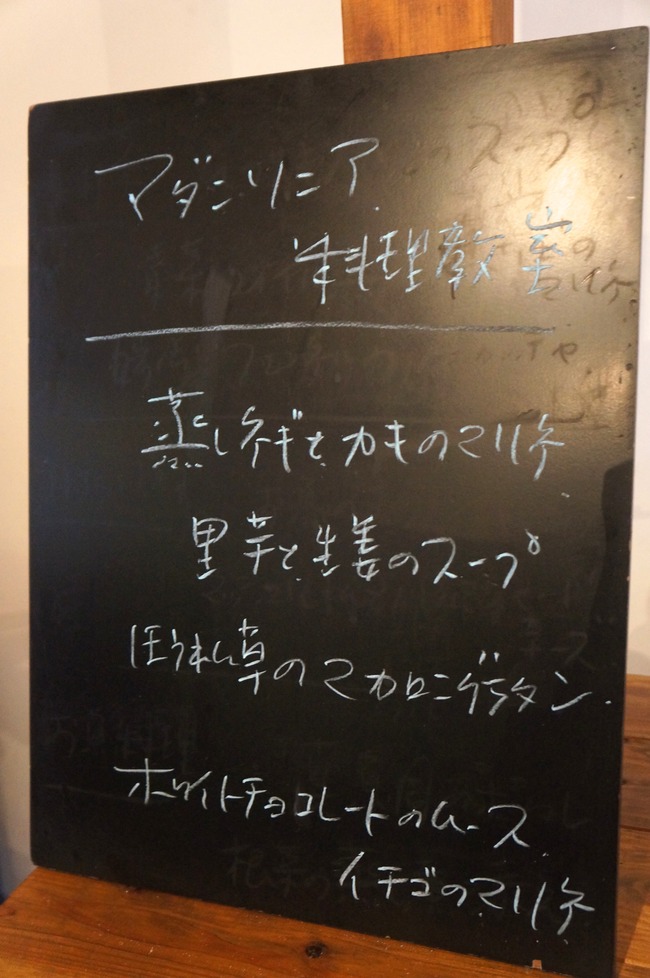 マダンリニア
料理教室
蒸しネギとカキのマリネ
里芋と生姜のスープ
ほうれん草のマカロニグラタン
ホワイトチョコレートのムース
イチゴのマリネ